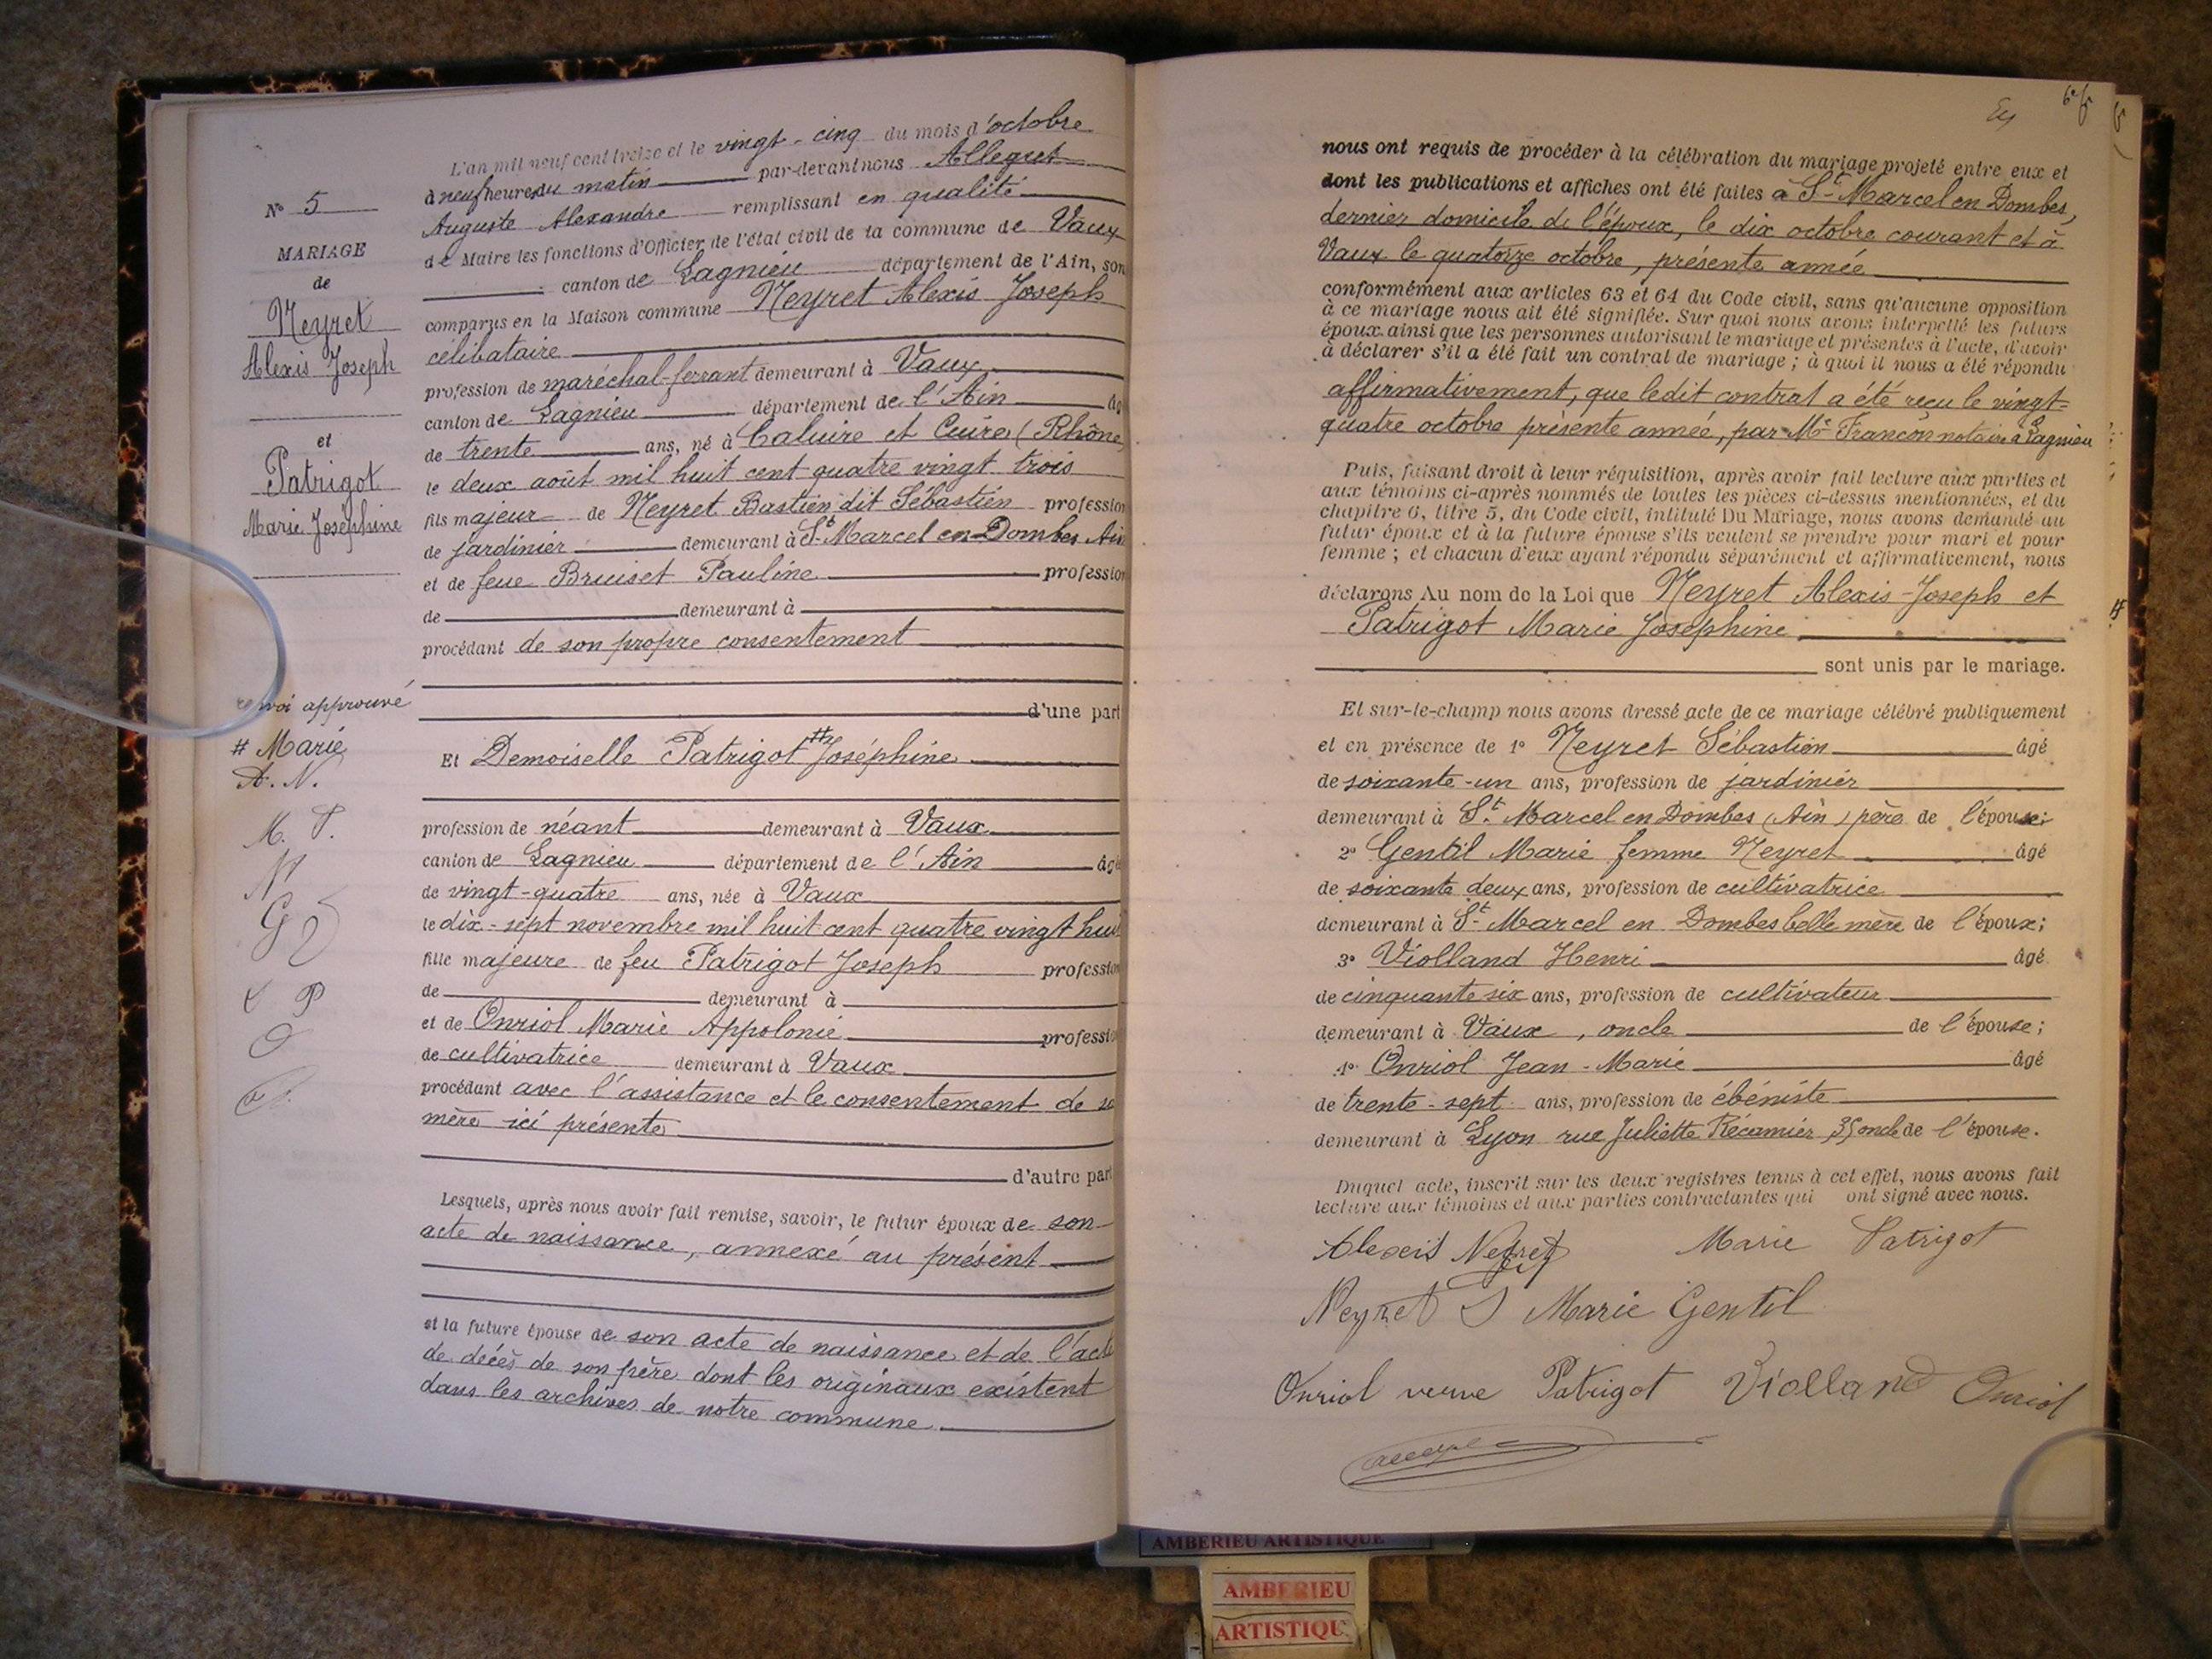 N° 5
MARIAGE
de
Neyret
Alexis Joseph
et
Patrigot
Marie Josephine
renvoi approuvé
# Marie
A. N.
M. P.
L'an mil neuf cent treize et le vingt-cinq du mois d'octobre
à neuf heures du matin par-devant nous Allegret
Auguste Alexandre remplissant en qualité
de Maire les fonctions d'Officier de l'état civil de la commune de Vaux
canton de Lagnieu département de l'Ain, son
comparus en la Maison commune Neyret Alexis Joseph
célibataire
profession de maréchal-ferrant demeurant à Vaux
canton de Lagnieu département de l'Ain âg
de trente ans, né à Caluire et Cuire (Rhône)
le deux août mil huit cent quatre vingt trois
fils majeur de Neyret Bastien dit Sébastien profession
de jardinier demeurant à St Marcel en Dombes Ain
et de feue Bruiset Pauline profession
de demeurant à
procédant de son propre consentement
d'une part
Et Demoiselle Patrigot # Joséphine
profession de néant demeurant à Vaux
canton de Lagnieu département de l'Ain âgé
de vingt-quatre ans, née à Vaux
le dix-sept novembre mil huit cent quatre vingt huit
fille majeure de feu Patrigot Joseph profession
de demeurant à
et de Onriol Marie Appolonie profession
de cultivatrice demeurant à Vaux
procédant avec l'assistance et le consentement de sa
mère ici présente
d'autre part
Lesquels, après nous avoir fait remise, savoir, le futur époux de son
acte de naissance, annexé au présent
et la future épouse de son acte de naissance et de l'acte
de décès de son père dont les originaux existent
dans les archives de notre commune
nous ont requis de procéder à la célébration du mariage projeté entre eux et
dont les publications et affiches ont été faites à St-Marcel en Dombes,
dernier domicile de l'époux, le dix octobre courant et à
Vaux le quatorze octobre, présente année
conformément aux articles 63 et 64 du Code civil, sans qu'aucune opposition
à ce mariage nous ait été signifiée. Sur quoi nous avons interpellé les futurs
époux ainsi que les personnes autorisant le mariage et présentes à l'acte, d'avoir
à déclarer s'il a été fait un contrat de mariage ; à quoi il nous a été répondu
affirmativement, que ledit contrat a été reçu le vingt-
quatre octobre présente année, par Me Françon notaire à Lagnieu
Puis, faisant droit à leur réquisition, après avoir fait lecture aux parties et
aux témoins ci-après nommés de toutes les pièces ci-dessus mentionnées, et du
chapitre 6, titre 5, du Code civil, intitulé Du Mariage, nous avons demandé au
futur époux et à la future épouse s'ils veulent se prendre pour mari et pour
femme ; et chacun d'eux ayant répondu séparément et affirmativement, nous
déclarons Au nom de la Loi que Neyret Alexis-Joseph et
Patrigot Marie Joséphine
sont unis par le mariage.
Et sur-le-champ nous avons dressé acte de ce mariage célébré publiquement
et en présence de 1° Neyret Sébastien âgé
de soixante-un ans, profession de jardinier
demeurant à St Marcel en Dombes (Ain) père de l'épouse;
2° Gentil Marie femme Neyret âgé
de soixante deux ans, profession de cultivatrice
demeurant à St-Marcel en Dombes belle mère de l'époux;
3° Violland Henri âgé
de cinquante six ans, profession de cultivateur
demeurant à Vaux, oncle de l'épouse;
4° Onriol Jean-Marie âgé
de trente-sept ans, profession de ébéniste
demeurant à Lyon rue Juliette Récamier, 35 oncle de l'épouse.
Duquel acte, inscrit sur les deux registres tenus à cet effet, nous avons fait
lecture aux témoins et aux parties contractantes qui ont signé avec nous.
Alexis Neyret Marie Patrigot
Neyret S Marie Gentil
Onriol veuve Patrigot Violland Onriol
AMBERIEU ARTISTIQUE
AMBERIEU
ARTISTIQU